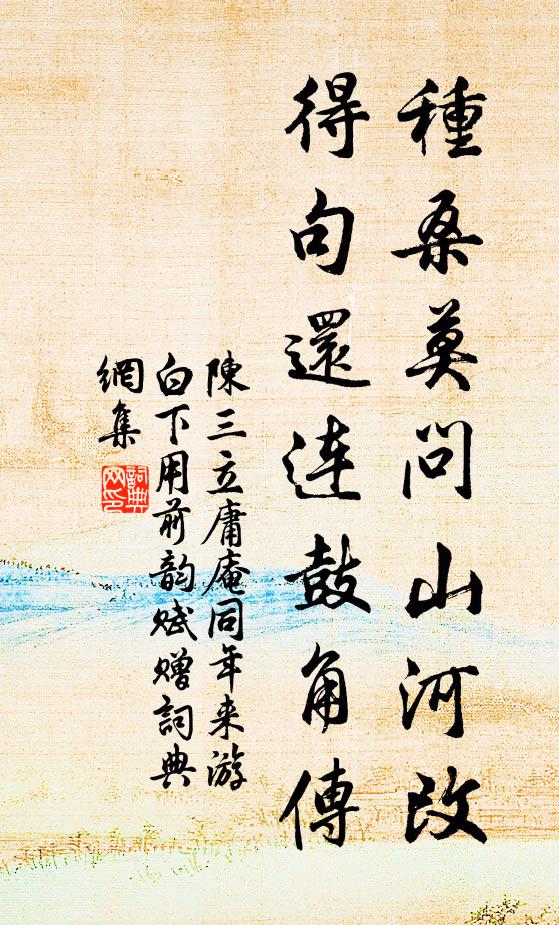 種桑莫問山河改
得句還连鼓角傳
陳三立庸庵同年来游
白下用前韵赋赠詞典
網集
詞典网印